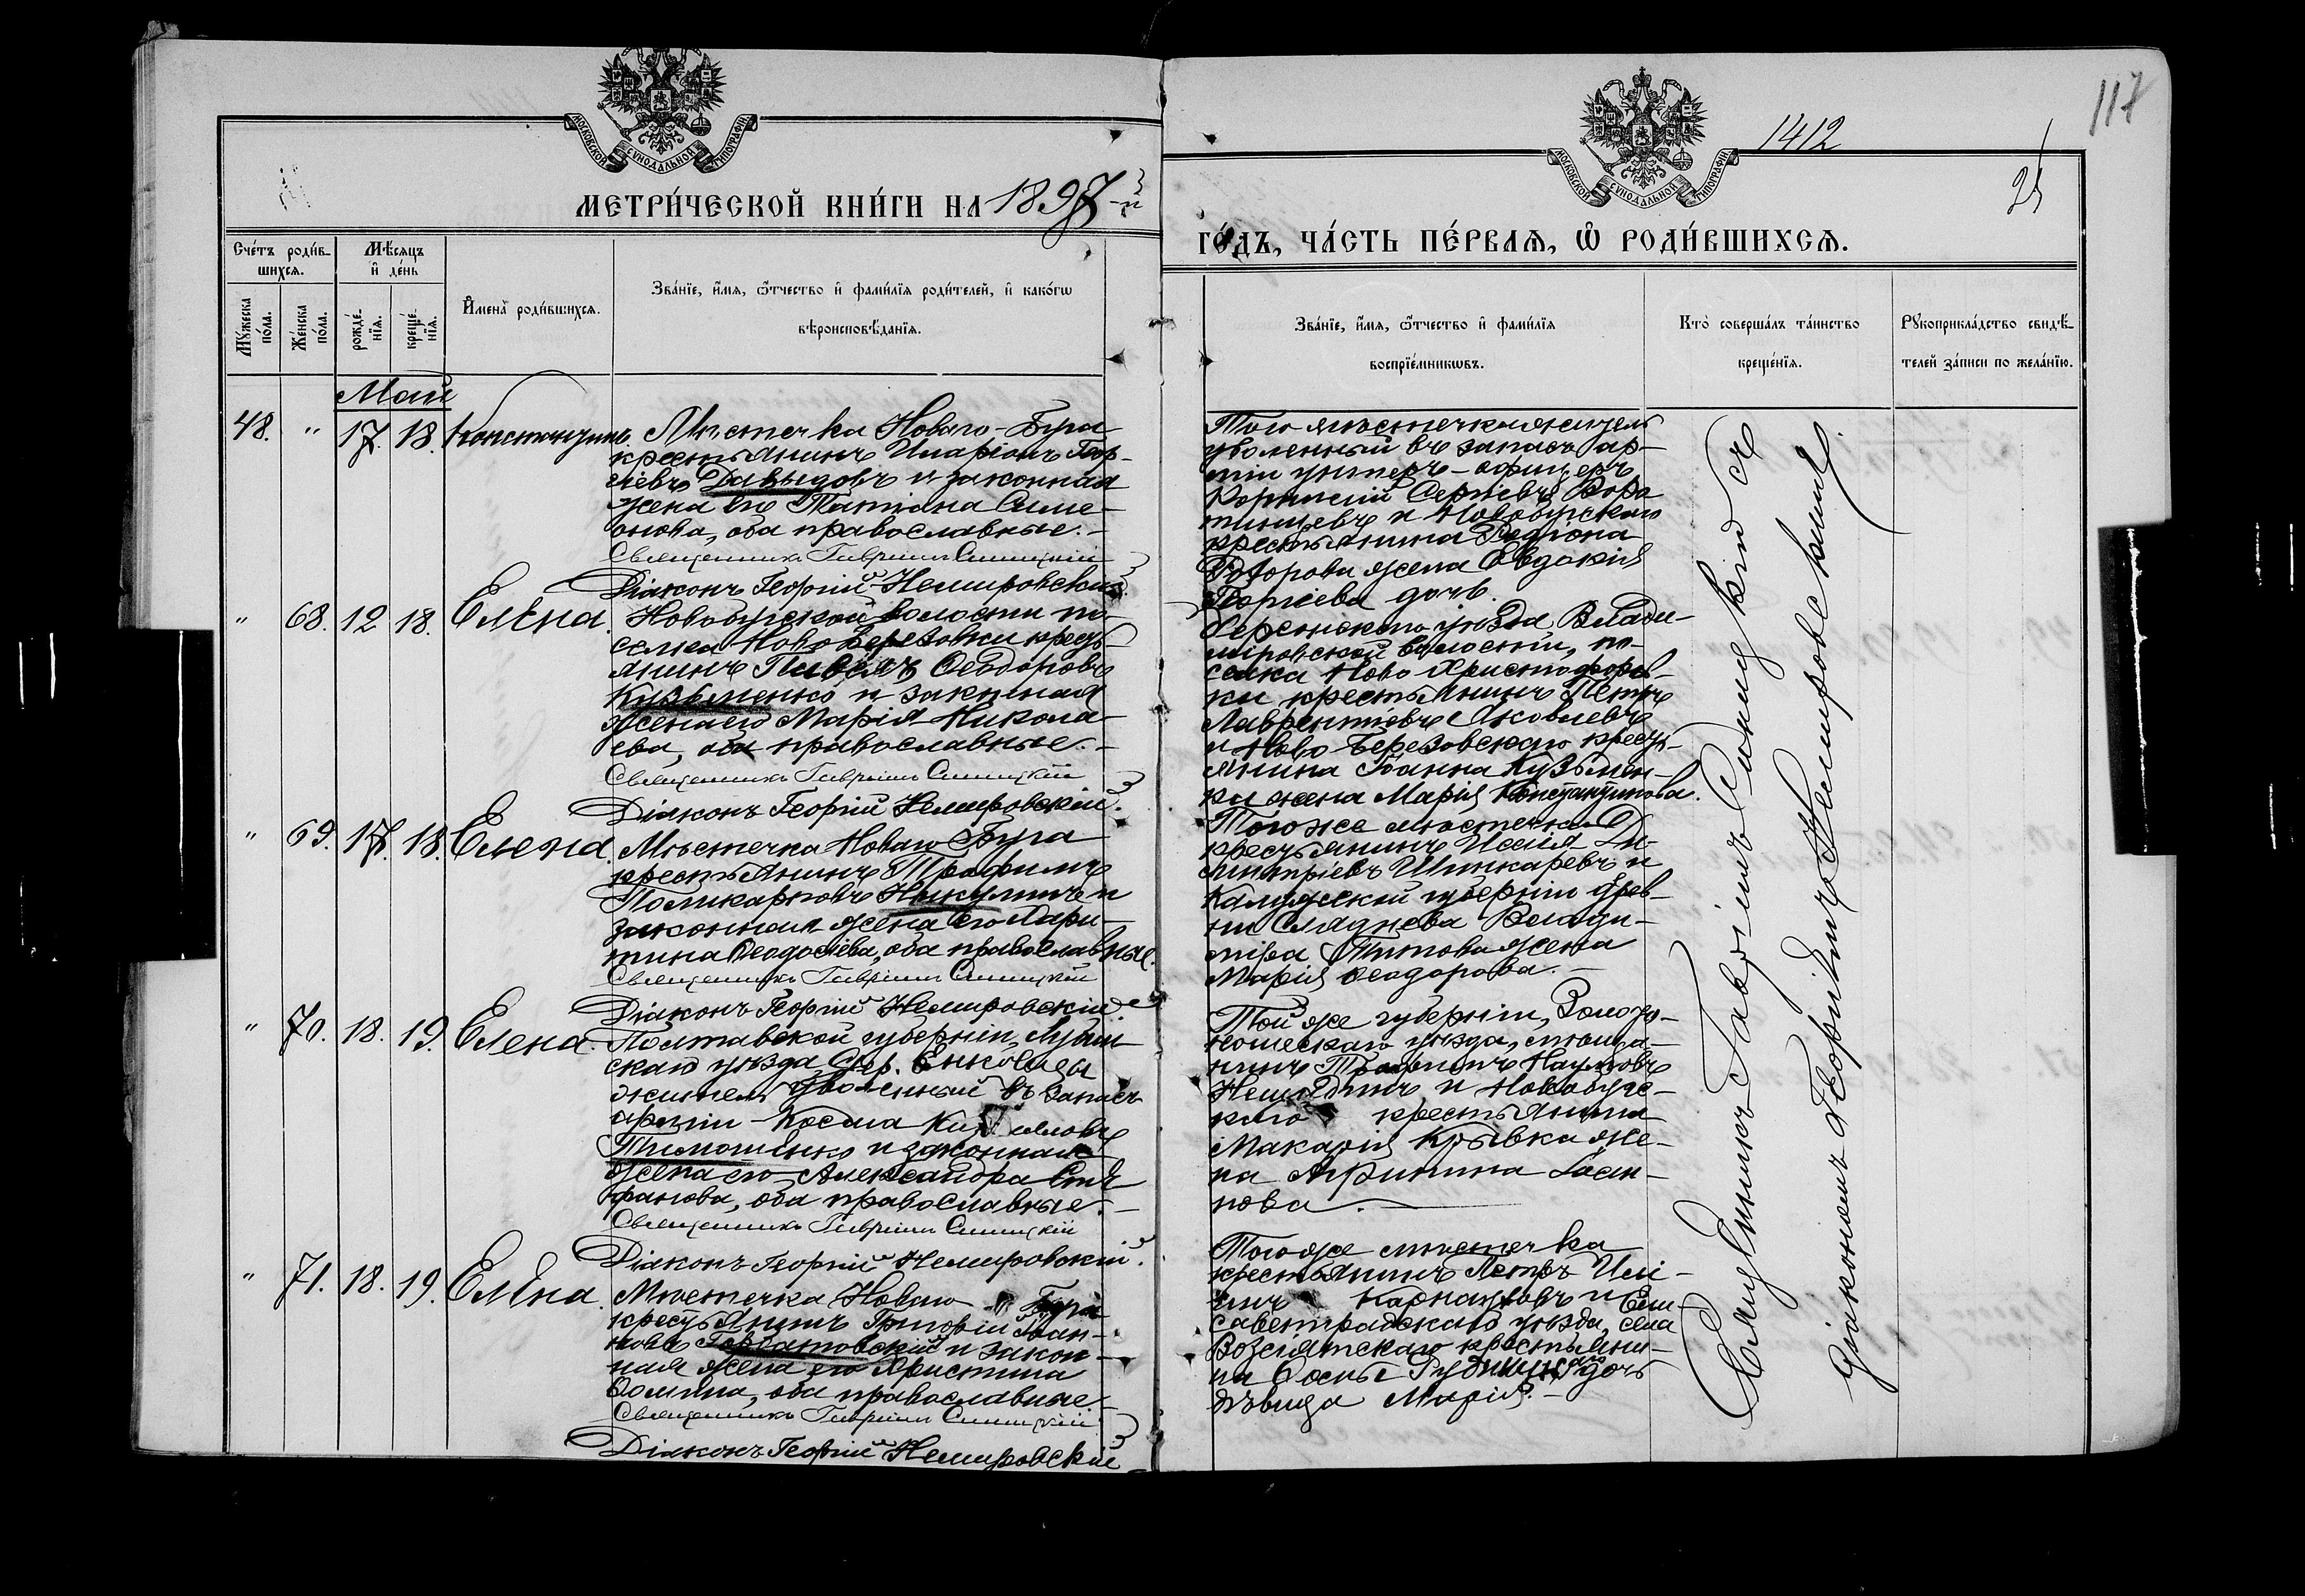 117
1412
25
МОСКОВСКОЙ СѴНОДАЛЬНОЙ ТИПОГРАФІИ
МОСКОВСКОЙ СѴНОДАЛЬНОЙ ТИПОГРАФІИ
МЕТРИ́ЧЕСКОЙ КНИ́ГИ НА 1897-й
ГО́ДЪ, ЧА́СТЬ ПЕ́РВАѦ, Ѡ҆ РОДИ́ВШИХСѦ.
Сче́тъ роди́в-
шихсѧ.
Мѣ́сѧцъ
и҆ де́нь
Мꙋ́жеска
по́ла.
Же́нска
по́ла.
рожде́-
нїѧ.
креще́-
нїѧ.
И҆мена̀ роди́вшихсѧ.
Зва́нїе, и҆́мѧ, ѻ҆́тчество и҆ фами́лїѧ роди́телей, и҆ како́гѡ
вѣроисповѣ́данїѧ.
Зва́нїе, и҆́мѧ, ѻ҆́тчество и҆ фами́лїѧ
воспрїе́мникѡвъ.
Кто̀ соверша́лъ та́инство
креще́нїѧ.
Рꙋкоприкла́дство свидѣ́-
телей за́писи по жела́нїю.
Май
48. " 17. 18. Константинъ.
Мѣстечка Новаго-Буга
крестьянинъ Иларіонъ Геор-
гіевъ Давыдовъ и законная
жена его Татіана Симе-
онова, оба православные.-
Священникъ Гавріилъ Синицкій
Діаконъ Георгій Немировскій.
Того мѣстечка житель
уволенный въ запасъ ар-
міи унтеръ-офицеръ
Корнилій Сергіевъ Воро
тинцевъ и Новобугскаго
крестьянина Родіона
Ѳеодорова жена Евдокія
Георгіева дочь.
" 68. 12 18. Елена.
Новобугской волости по-
селка Новоберезовки кресть-
янинъ Павелъ Ѳеодоровъ
Кузьменко и законная
жена его Марія Никола-
ева, оба православные.-
Священникъ Гавріилъ Синицкій
Діаконъ Георгій Немировскій.
Херсонскаго уѣзда Влади-
міровской волости, по-
селка Ново Христофоров-
ки крестьянинъ Петръ
Лаврентіевъ Яковлевъ
и Ново-Березовскаго кресть-
янина Іоанна Кузьмен-
ки жена Марія Константинова.
" 69. 17. 18. Елена.
Мѣстечка Новаго Буга
крестьянинъ Трофимъ
Поликарповъ Никулинъ и
законная жена его Хари-
тина Ѳеодосіева, оба православные.
Священникъ Гавріилъ Синицкій
Діаконъ Георгій Немировскій.
Того же мѣстечка
крестьянинъ Исаія Ди-
митріевъ Шинкаревъ и
Калужской губерніи дерев-
ни Влади-
міра Титова жена
Марія Ѳеодорова.-
" 70. 18. 19. Елена.
Полтавской губерніи, Лубен
скаго уѣзда, дер. Енковцы
житель уволенный въ запасъ
арміи Косма
Тимошенко и законная
жена его Александра Сте
фанова, оба православные.-
Священникъ Гавріилъ Синицкій
Діаконъ Георгій Немировскій.
Той же губерніи, Золото-
ношскаго уѣзда, мѣща-
нинъ Трофимъ Наумовъ
и Новобугс-
каго крестьянина
Макарія Крывка же-
на Агрипина Іоан-
нова.
" 71. 18. 19. Елена.
Мѣстечка Новаго Буга
крестьянинъ Григорій Іоан-
новъ Горбатовскій и закон-
ная жена его Христина
Ѳомина, оба православные.-
Священникъ Гавріилъ Синицкій
Діаконъ Георгій Немировскій
Того же мѣстечка
крестьянинъ Петръ Илі-
инъ Карнауховъ и Ели-
саветградскаго уѣзда, села
Возсіятскаго крестьяни-
на дочь
дѣвица Марія.-
Священникъ Гавріилъ Синицкій съ
діакономъ Георгіемъ Немировскимъ.